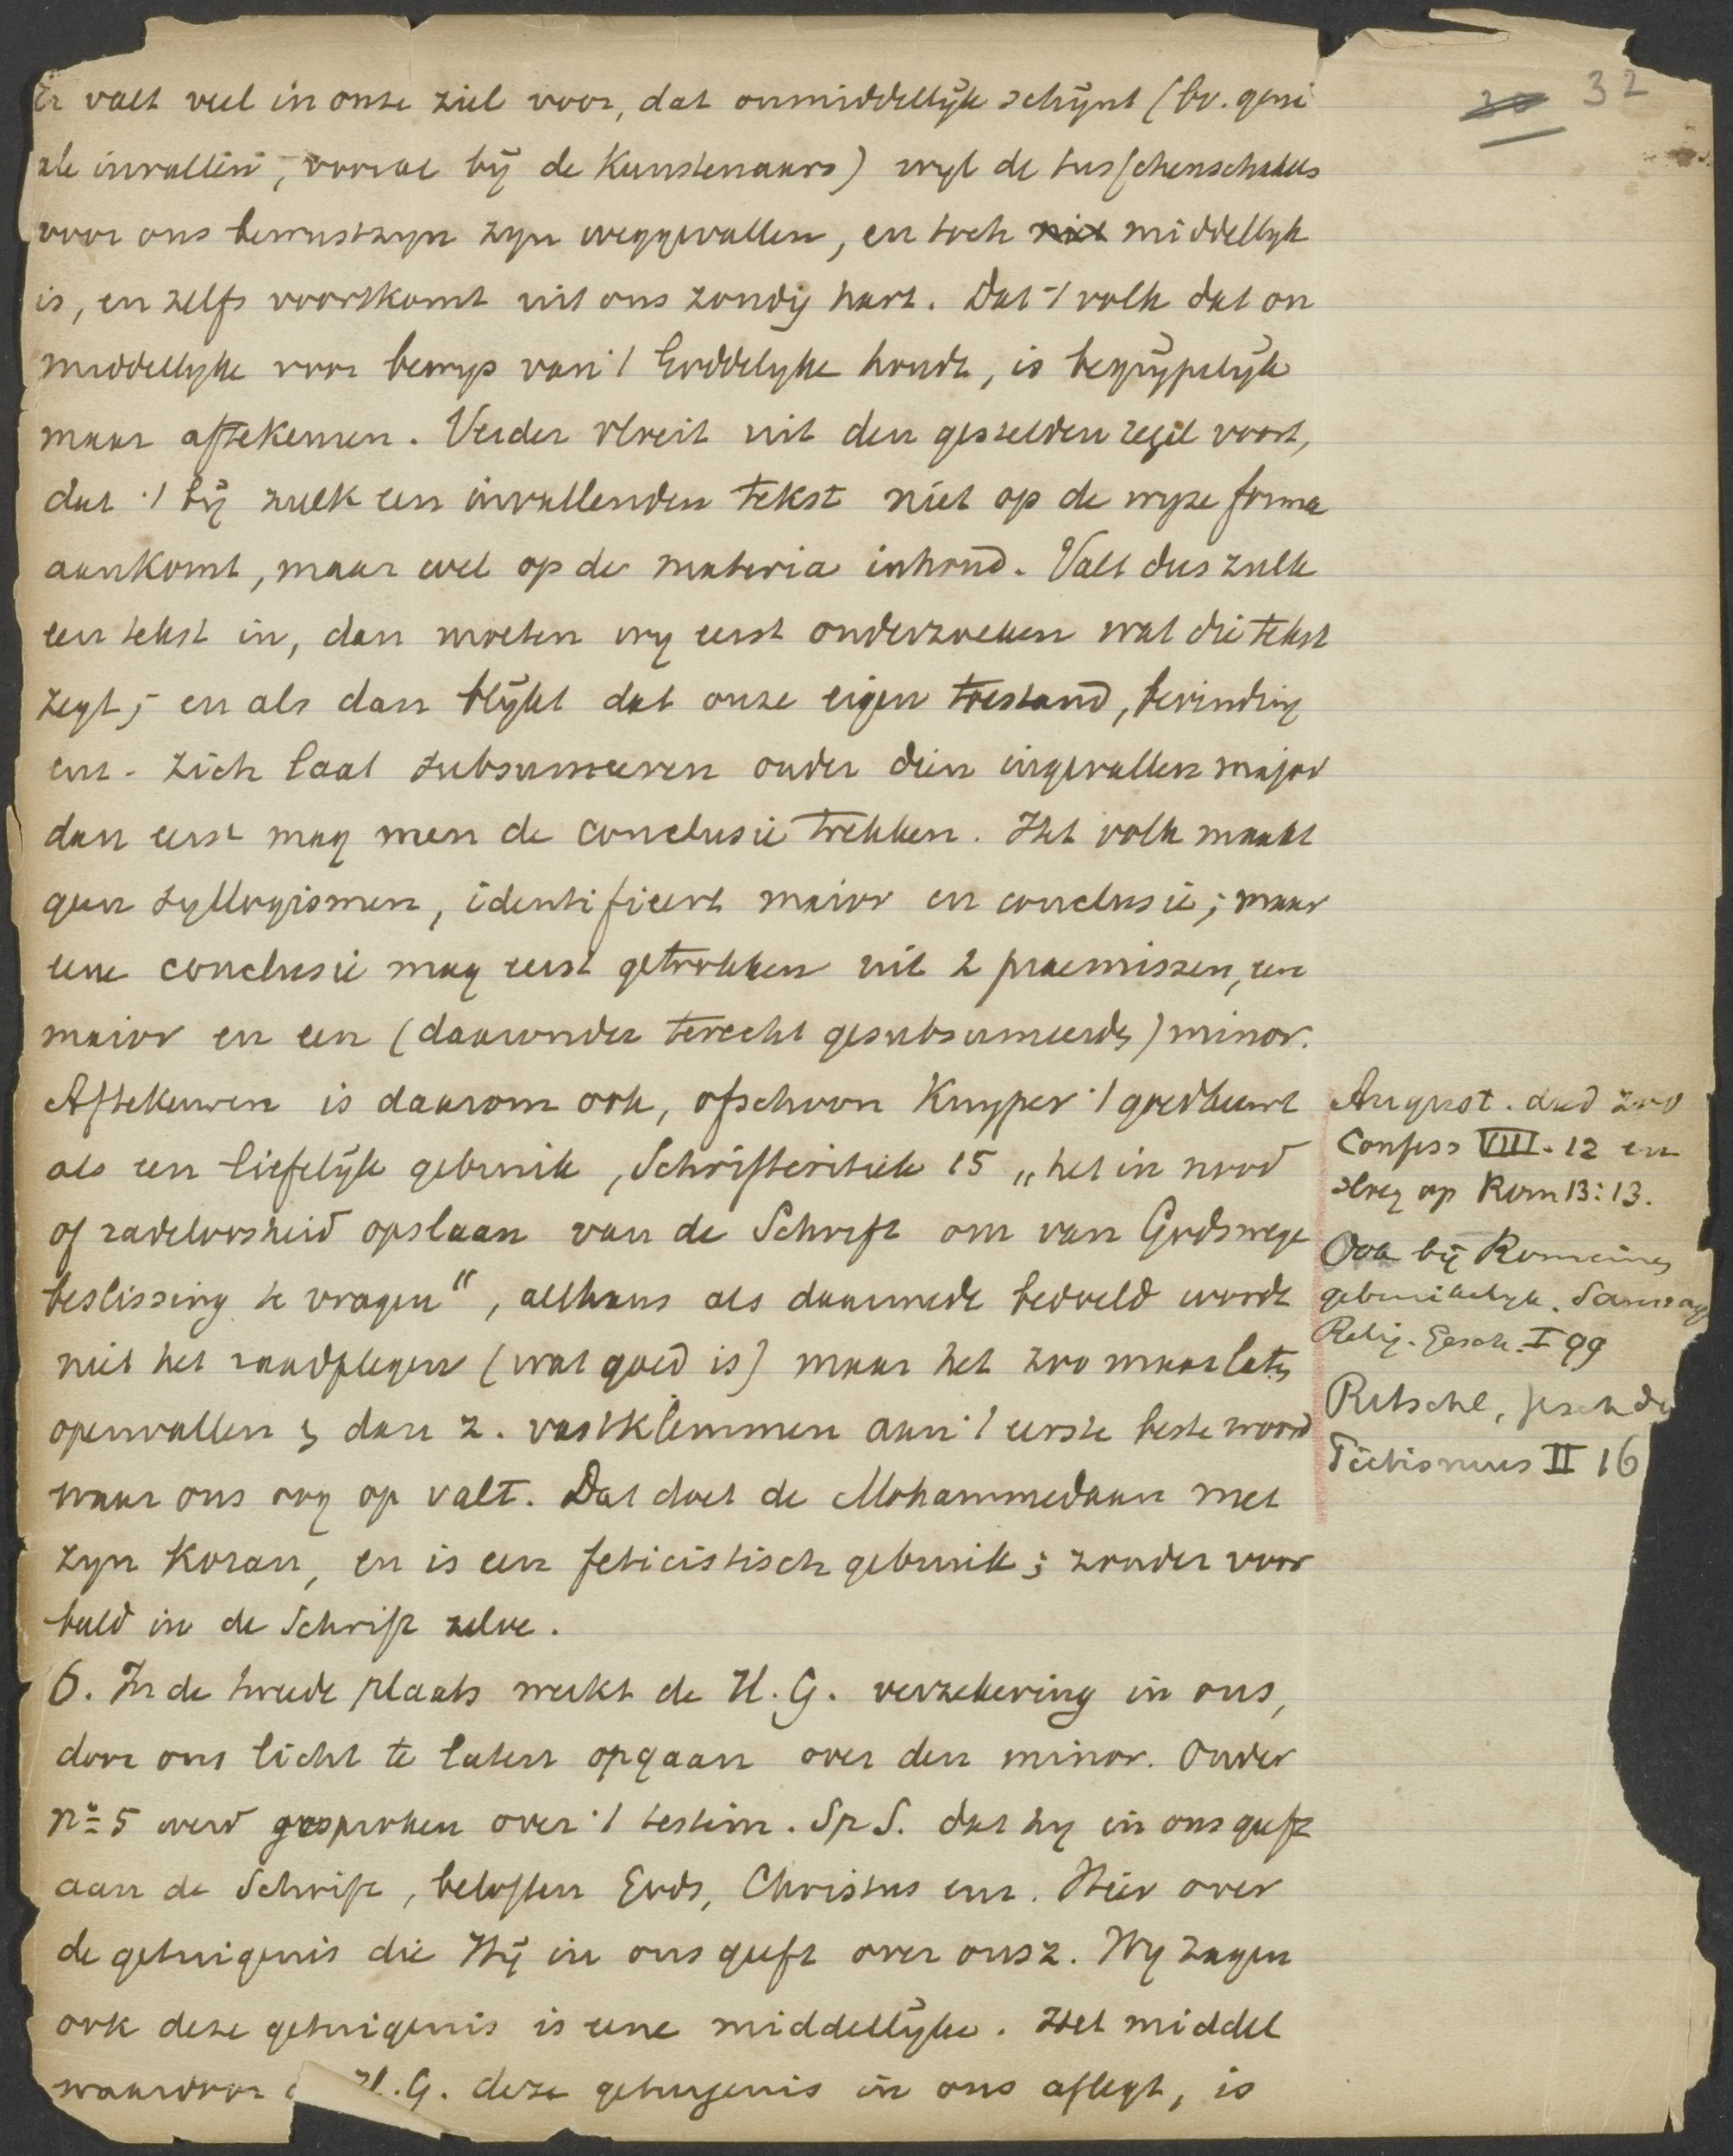 32
Er valt veel in onze ziel voor, dat onmiddellijk schijnt (bv. geni
ale invallen, vooral bij de Kunstenaars) wijl de tusschenschakels
voor ons bewustzijn zijn weggevallen, en toch niet middellijk
is, en zelfs voortkomt uit ons zondig hart. Dat 't volk dat on
middellijke voor bewijs van 't Goddelijke houdt, is begrijpelijk
maar af te keuren. Verder vloeit uit den gestelden regel voort,
dat 't bij zulk een invallenden tekst niet op de wijze forma
aankomt, maar wel op de materia inhoud. Valt dus zulk
een tekst in, dan moeten wij eerst onderzoeken wat die tekst
zegt; en als dan blijkt dat onze eigen toestand, bevinding
enz. zich laat subsumeeren onder dien ingevallen major
dan eerst mag men de conclusie trekken. Het volk maakt
geen syllogismen, identificeert maior en conclusie; maar
eene conclusie mag eerst getrokken uit 2 praemissen, een
maior en een (daaronder terecht gesubsumeerde) minor.
Af te keuren is daarom ook, ofschoon Kuyper 't goedkeurt
als een liefelijk gebruik, Schriftcritiek 15 „het in nood
of radeloosheid opslaan van de Schrift om van Godswege
beslissing te vragen“, althans als daarmede bedoeld wordt
niet het raadplegen (wat goed is) maar het zoo maar laten
openvallen & dan z. vastklemmen aan 't eerste beste woord
waar ons oog op valt. Dat doet de Mohammedaan met
zijn Koran, en is een feticistisch gebruik; zonder voor
beeld in de Schrift zelve.
August. deed zoo
Confess VIII.12 en
sloeg op Rom 13:13.
Ook bij Romeinen
gebruikelijk. Saussaye
Relig. Gesch. I 99
Ritschl, Gesch de
Pietismus II 16
6. In de tweede plaats werkt de H.G. verzekering in ons,
door ons licht te laten opgaan over den minor. Onder
no 5 werd gesproken over 't testim. Sp S. dat hij in ons geeft
aan de Schrift, beloften Gods, Christus enz. Hier over
de getuigenis die Hij in ons geeft over onsz. Wij zagen
ook deze getuigenis is eene middellijke. Het middel
waardoor H.G. deze getuigenis in ons aflegt, is